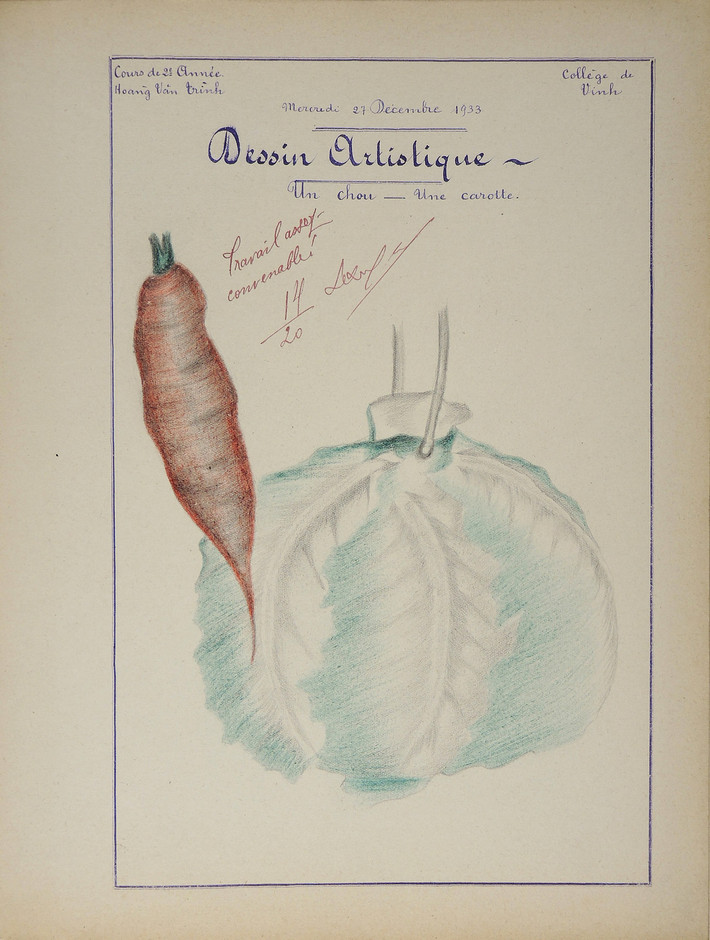 Cours de 2è Année.
Hoang Văn Trình
Collège de
Vinh
Mercredi 27 Décembre 1933
Dessin Artistique ~
Un chou — Une carotte.
Travail assez
convenable!
14
20